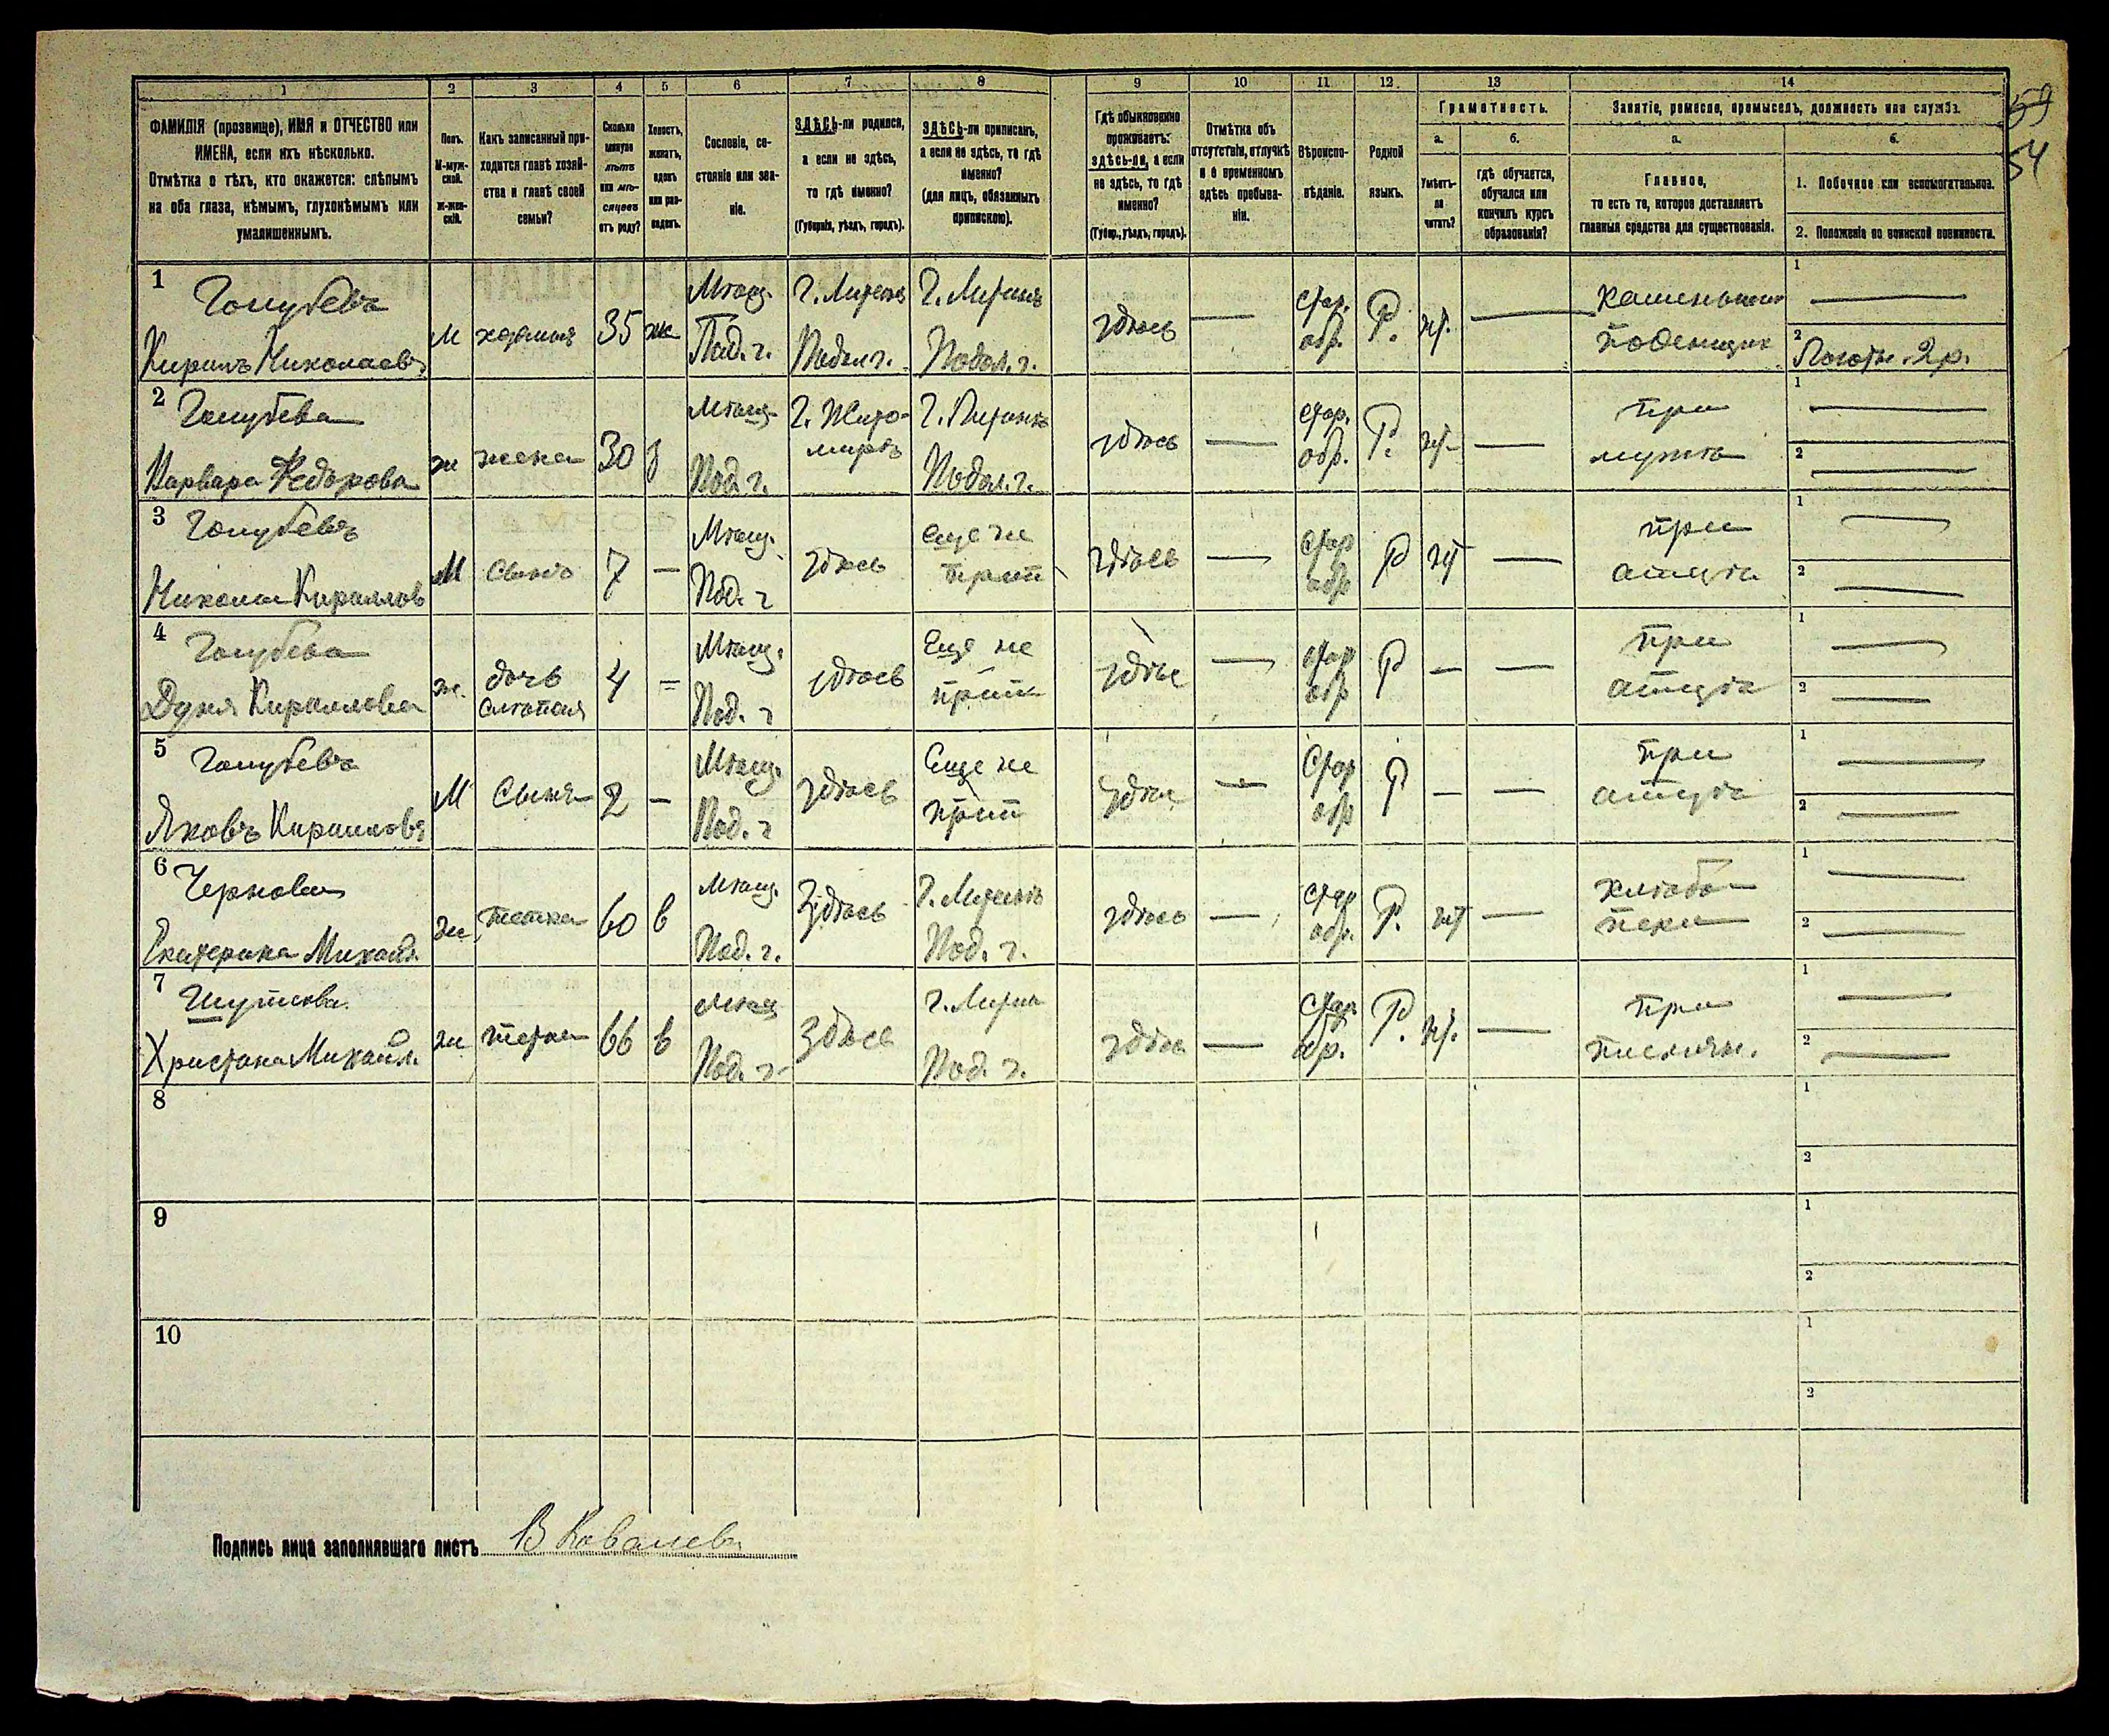 1 2 3 4 5 6 7 8 9 10 11 12 13 14
ФАМИЛІЯ (прозвище), ИМЯ и ОТЧЕСТВО или
ИМЕНА, если ихъ нѣсколько.
Отмѣтка о тѣхъ, кто окажется: слѣпымъ
на оба глаза, нѣмымъ, глухонѣмымъ или
умалишеннымъ.
Полъ.
М-муж-
ской.
ж-жен-
скій.
Какъ записанный при-
ходится главѣ хозяй-
ства и главѣ своей
семьи?
Сколько
минуло
лѣтъ
или мѣ-
сяцевъ
отъ роду?
Холостъ,
женатъ,
вдовъ
или раз-
веденъ.
Сословіе, со-
стояніе или зва-
ніе.
ЗДѢСЬ-ли родился,
а если не здѣсь,
то гдѣ именно?
(Губернія, уѣздъ, городъ).
ЗДѢСЬ-ли приписанъ,
а если не здѣсь, то гдѣ
именно?
(для лицъ, обязанныхъ
припискою).
Гдѣ обыкновенно
проживаетъ:
здѣсь-ли, а если
не здѣсь, то гдѣ
именно?
(Губер., уѣздъ, городъ).
Отмѣтка объ
отсутствіи, отлучкѣ
и о временномъ
здѣсь пребыва-
ніи.
Вѣроиспо-
вѣданіе.
Родной
языкъ.
Грамотность.
а.
Умѣетъ-
ли
читать?
б.
гдѣ обучается,
обучался или
кончилъ курсъ
образованія?
Занятіе, ремесло, промыселъ, должность или служба.
а.
Главное,
то есть то, которое доставляетъ
главныя средства для существованія.
б.
1. Побочное или вспомогательное.
2. Положеніе по воинской повинности.
59
54
1 Голубевъ
Кирилъ Николаевъ
М хозяинъ 35 ж
Мѣщ.
Под. г.
Подол. г.
Подол. г.
здѣсь — стар.
обр. Р. —
поденщик
1 —
2
2 Голубева
Варвара Федорова
ж жена 30 з
Мѣщ.
Под. г.
Г. Жито-
миръ
Подол. г.
здѣсь — стар.
обр. Р. —
при
мужѣ
1 —
2 —
3 Голубевъ
Николай Кириллов
М сынъ 7 —
Мѣщ.
Под. г
здѣсь
еще не
прип
здѣсь — стар
обр Р —
при
отцѣ
1 —
2 —
4 Голубева
Дуня Кириллова
ж. дочь
слѣпая
4 =
Мѣщ.
Под. г
здѣсь
Еще не
прип
здѣс — стар
обр Р — —
при
отцѣ
1 —
2 —
5 Голубевъ
Яковъ Кирилловъ
М Сынъ 2 —
Мѣщ.
Под. г
здѣсь
Еще не
прип
здѣс — Стар
обр Р — —
при
отцѣ
1 —
2 —
6 Чернова
Екатерина Михайл.
ж тетка 60 в
Мѣщ.
Под. г.
Здѣсь
Под. г.
здѣсь — стар
обр. Р. —
хлѣбо-
пека
1 —
2 —
7
Христина Михайл.
ж тетка 66 в
Мѣщ
Под. г.
Здѣсь
Под. г.
здѣсь — Стар.
обр. Р. —
при
1 —
2 —
8 1
2
9 1
2
10 1
2
Подпись лица заполнявшаго листъ В Ковалевъ